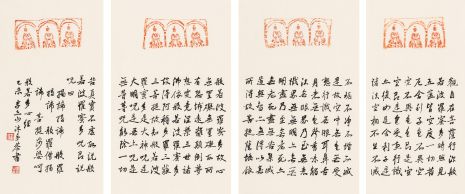 觀自在菩薩行深般
若波羅蜜多時照見
五蘊皆空度一切苦
厄舍利子色不異空
空不異色色即是空
空即是色受想行識
亦復如是舍利子是
諸法空相不生不滅
不垢不淨不增不減
是故空中無色無受
想行識無眼耳鼻舌
身意無色聲香味觸
法無眼界乃至無意
識界無無明亦無無
明盡乃至無老死亦
無老死盡無苦集滅
道無智亦無得以無
所得故菩提薩埵依
般若波羅蜜多故心
無罣礙無罣礙故無
有恐怖遠離顛倒夢
想究竟涅槃三世諸
佛依般若波羅蜜多
故得阿耨多羅三藐
三菩提故知般若波
羅蜜多是大神咒是
大明咒是無上咒是
無等等咒能除一切
苦真實不虛故說般
若波羅蜜多咒即說
咒曰
揭諦揭諦 般羅
揭諦 般羅僧揭
諦 菩提莎婆呵
般若多心經
乙未